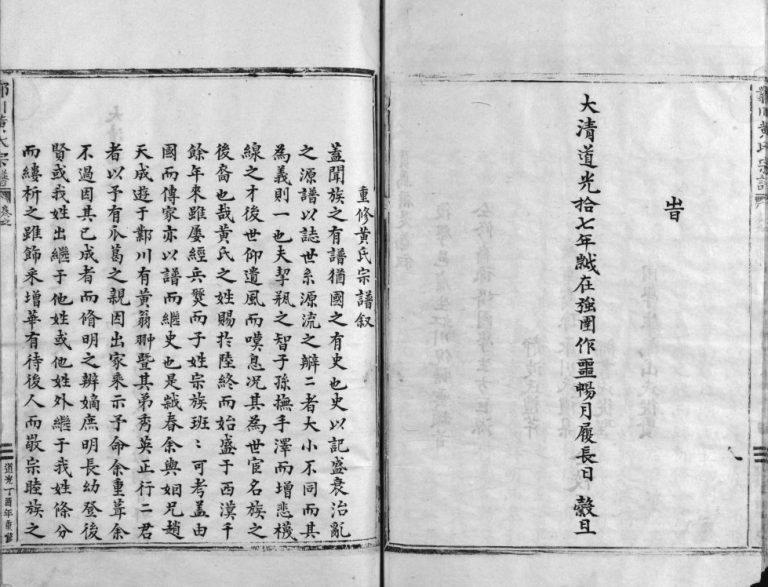 旹
大清道光拾七年歲在強圉作噩暢月履長日 穀旦
重修黃氏宗譜叙
蓋聞族之有譜猶國之有史也史以記盛衰治亂
之源譜以誌世系源流之辨二者大小不同而其
為義則一也夫挈瓶之智子孫撫手澤而增悲機
線之才後世仰遺風而嘆息况其為世宦名族之
後裔也哉黃氏之姓賜於陸終而始盛于西漢千
餘年來雖屡經兵燹而子姓宗族班〻可考盖由
國而傳家亦以譜而繼史也是歲春余與姻兄趙
天成遊于鄿川有黃翁翀曁其弟秀英正行二君
者以予有瓜葛之親因出家乘示予命余重葺余
不過因其已成者而脩明之辨嫡庶明長幼登後
賢或我姓出繼于他姓或他姓外繼于我姓條分
而縷析之雖飾采增華有待後人而敬宗睦族之
川黃氏宗譜
卷之
道光丁酉年重修